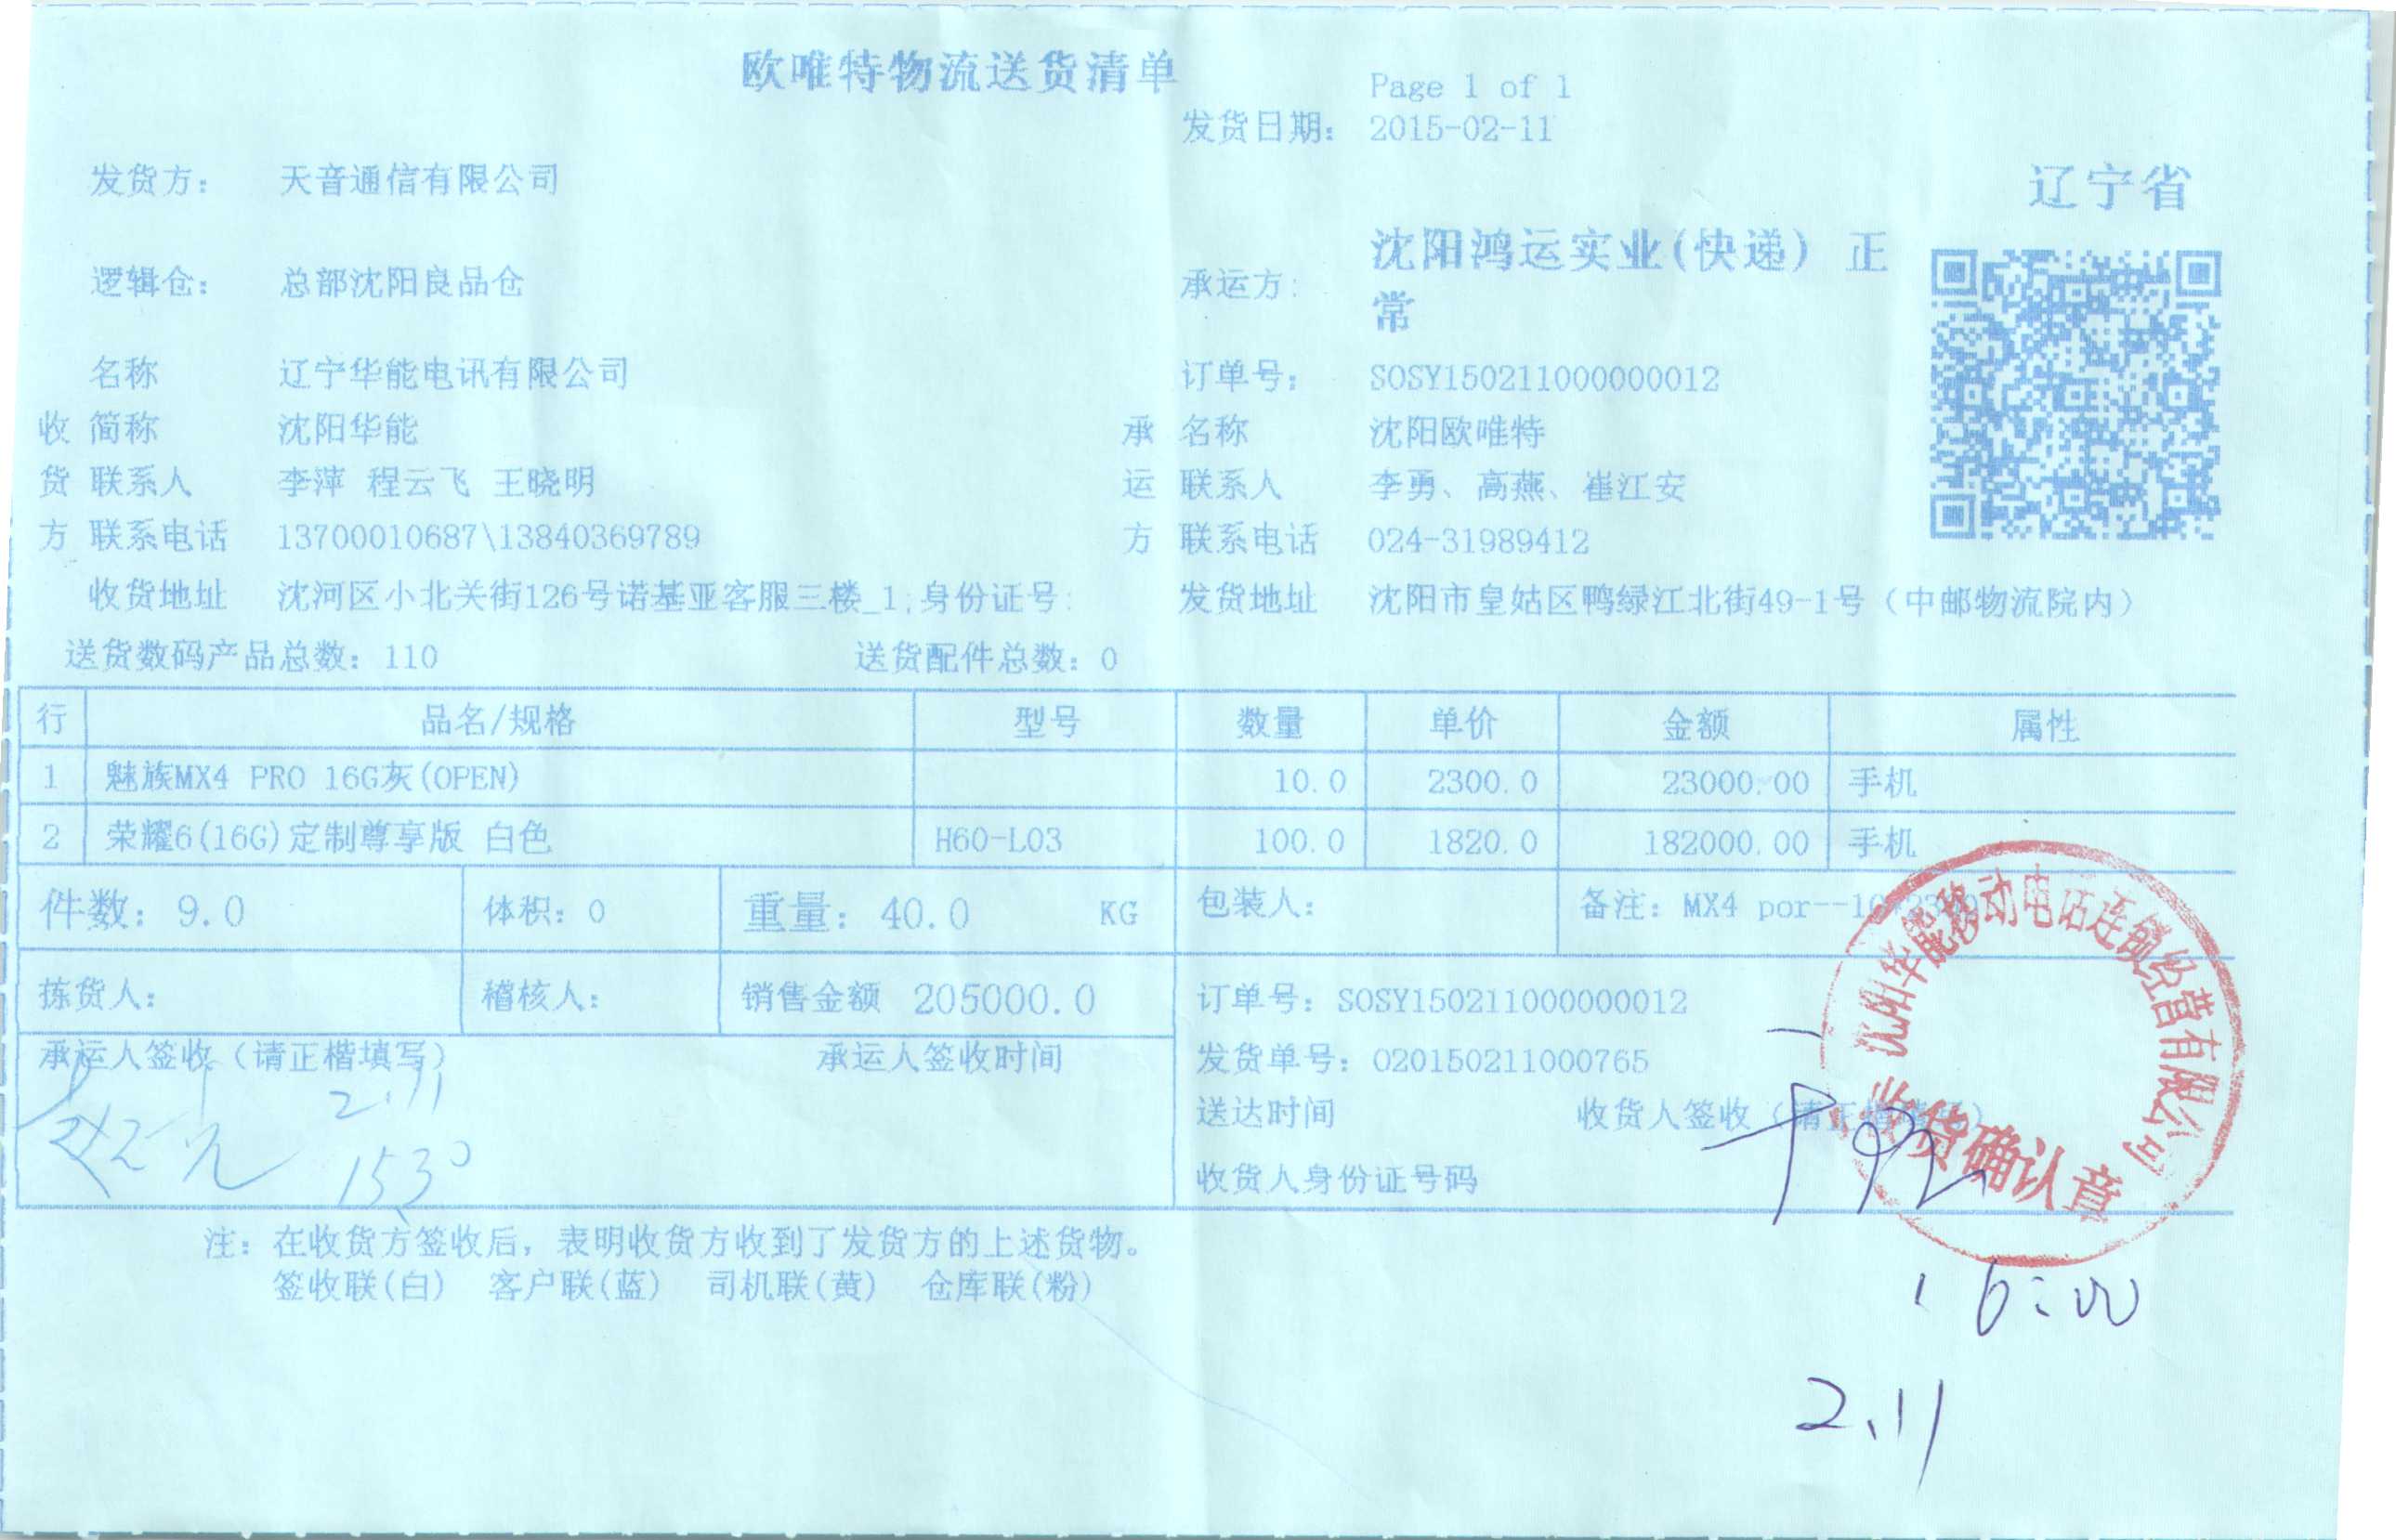 欧唯特物流送货清单
Page 1 of 1
发货日期： 2015-02-11
发货方： 天音通信有限公司
辽宁省
逻辑仓： 总部沈阳良品仓
承运方： 沈阳鸿运实业(快递) 正
常
名称 辽宁华能电讯有限公司 订单号： SOSY150211000000012
收 简称 沈阳华能 承 名称 沈阳欧唯特
货 联系人 李萍 程云飞 王晓明 运 联系人 李勇、高燕、崔江安
方 联系电话 13700010687\13840369789 方 联系电话 024-31989412
收货地址 沈河区小北关街126号诺基亚客服三楼_1;身份证号: 发货地址 沈阳市皇姑区鸭绿江北街49-1号（中邮物流院内）
送货数码产品总数：110 送货配件总数：0
行 品名/规格 型号 数量 单价 金额 属性
1 魅族MX4 PRO 16G灰(OPEN) 10.0 2300.0 23000.00 手机
2 荣耀6(16G)定制尊享版 白色 H60-L03 100.0 1820.0 182000.00 手机
件数：9.0 体积：0 重量：40.0 KG 包装人： 备注：MX4 por--10
拣货人： 稽核人： 销售金额 205000.0 订单号：SOSY150211000000012
承运人签收（请正楷填写） 承运人签收时间 发货单号：020150211000765
2.11
1530
送达时间 收货人签收（请正楷
收货人身份证号码
沈阳华能移动电话连锁经营有限公司
收货确认章
注：在收货方签收后，表明收货方收到了发货方的上述货物。
签收联(白) 客户联(蓝) 司机联(黄) 仓库联(粉)
16:00
2.11